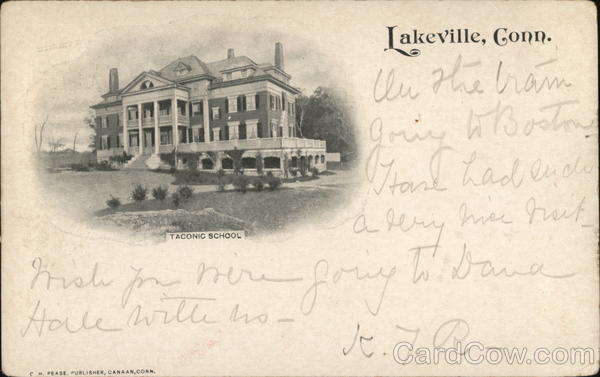 Lakeville, Conn.
On the train
going to Boston
Have had such
a very nice visit—
TACONIC SCHOOL
Wish you were going to Dana
Hall with us—
K. F. B.
C. H. PEASE, PUBLISHER, CANAAN, CONN.
CardCow.com